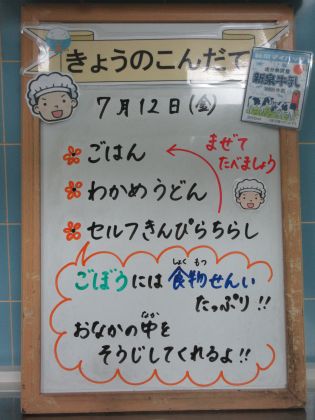 きょうのこんだて
新泉牛乳
7月12日(金)
まぜて
たべましょう
ごはん
わかめうどん
セルフきんぴらちらし
ごぼうには食物せんい
しょくもつ
たっぷり!!
おなかの中を
なか
そうじしてくれるよ!!